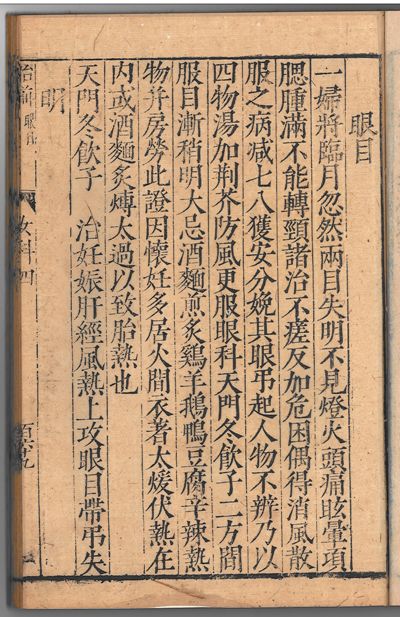 眼目
一婦將臨月忽然兩目失明不見燈火頭痛眩暈項
腮腫滿不能轉頸諸治不瘥反加危困偶得消風散
服之病減七八獲安分娩其眼弔起人物不辨乃以
四物湯加荆芥防風更服眼科天門冬飲子二方間
服目漸稍明大忌酒麵煎炙鷄羊鵝鴨豆腐辛辣熱
物并房勞此證因懷妊多居火間衣著太煖伏熱在
内或酒麵炙煿太過以致胎熱也
天門冬飲子　治妊娠肝經風熱上攻眼目帶弔失
明
胎前 眼目 女科四